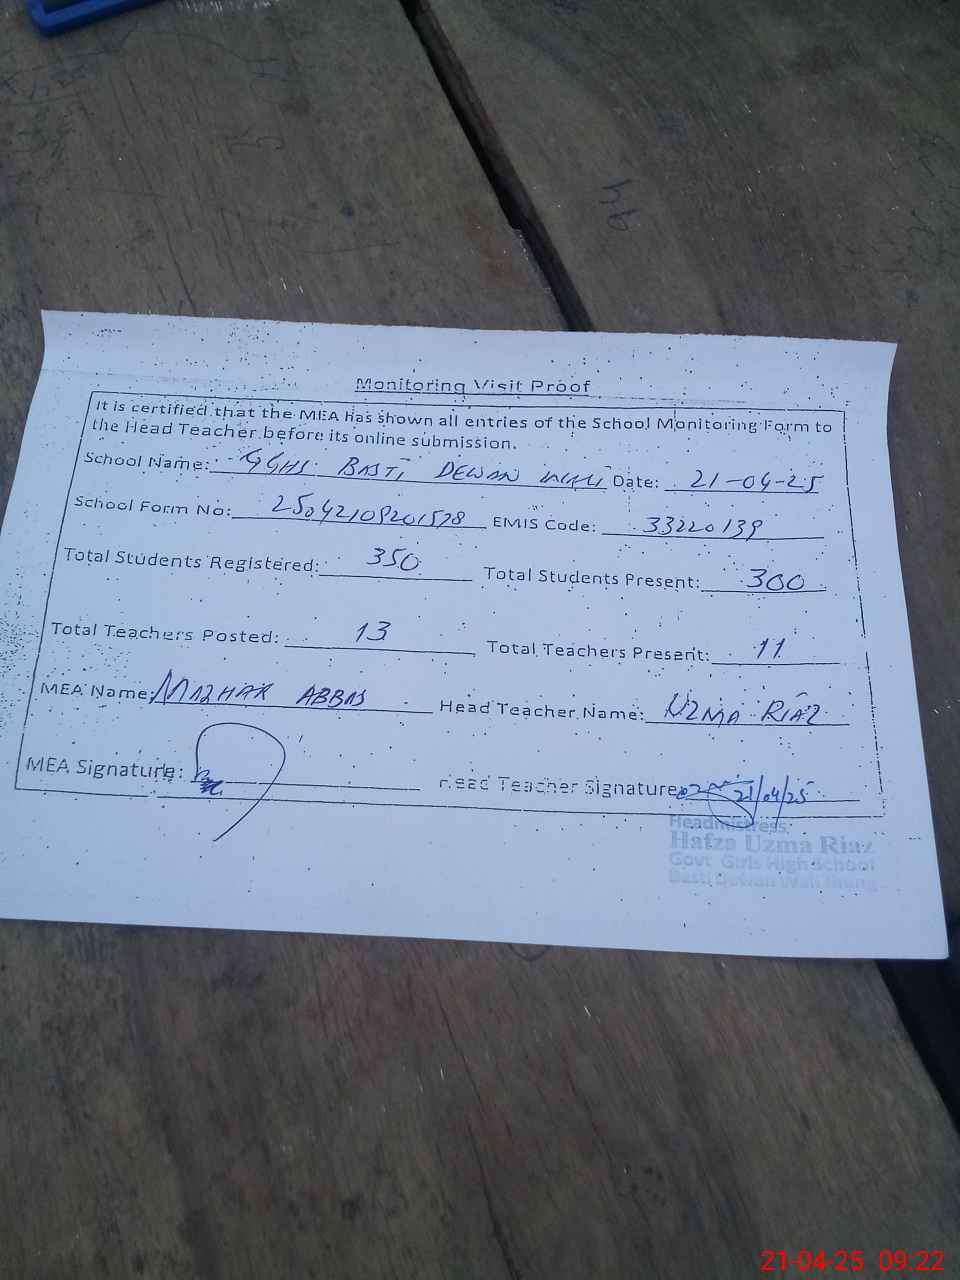 Monitoring Visit Proof
It is certified that the MEA has shown all entries of the School Monitoring Form to
the Head Teacher before its online submission.
School Name: GGHS BASTI DEWAN WALI Date: 21-04-25
School Form No: 25042109201578 EMIS Code: 33220139
Total Students Registered: 350 Total Students Present: 300
Total Teachers Posted: 13 Total Teachers Present: 11
MEA Name: MAZHAR ABBAS Head Teacher Name: UZMA RIAZ
MEA Signature: Head Teacher Signature 21/04/25
Headmistress
Hafza Uzma Riaz
Govt Girls High School
Basti Dewan Wali Jhang
21-04-25 09:22